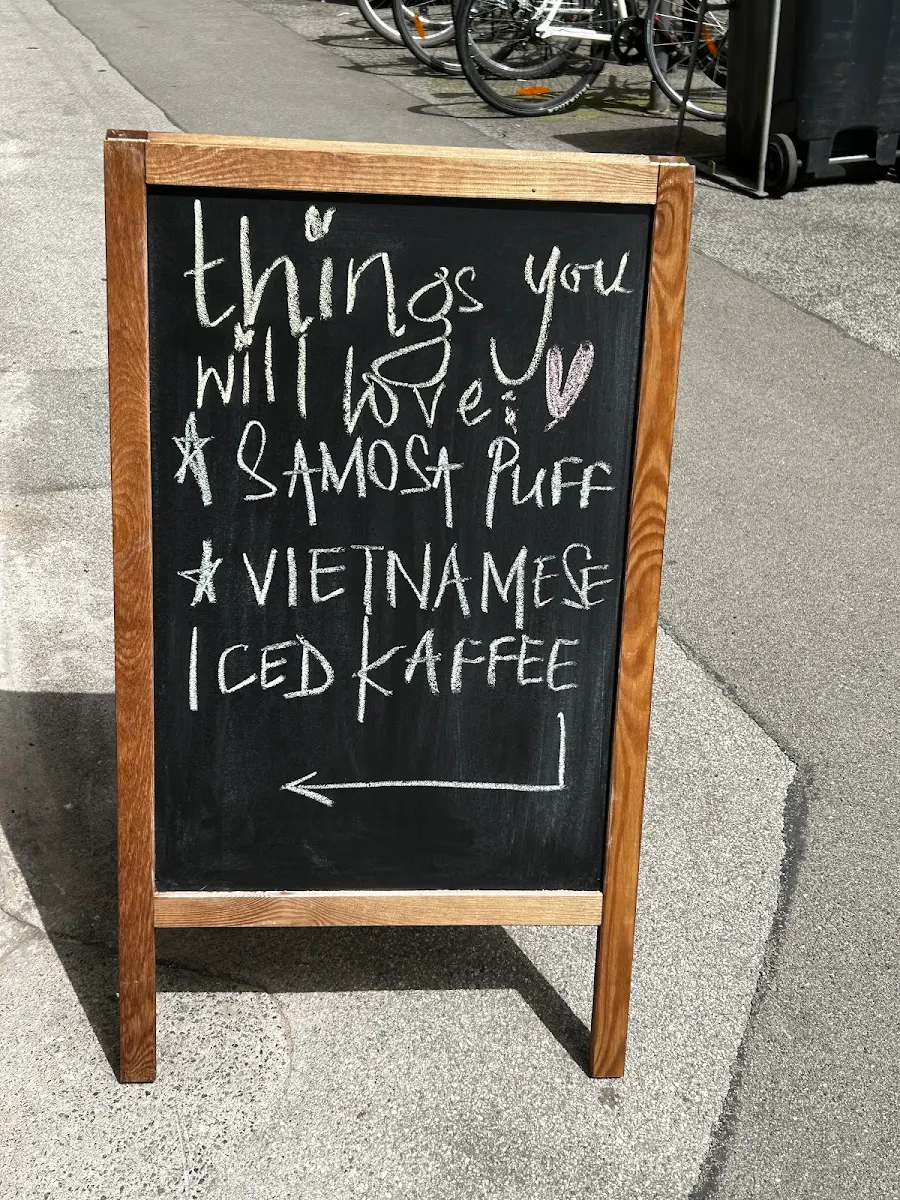 things you
will love:
SAMOSA PUFF
VIETNAMESE
ICED KAFFEE